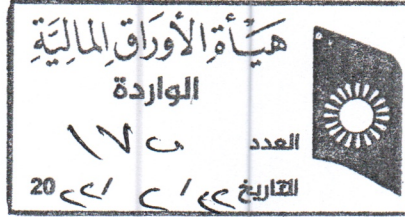 هيأة الأوراق المالية
الواردة
العدد
التاريخ ٢٢ / ٢ / 20٢٢